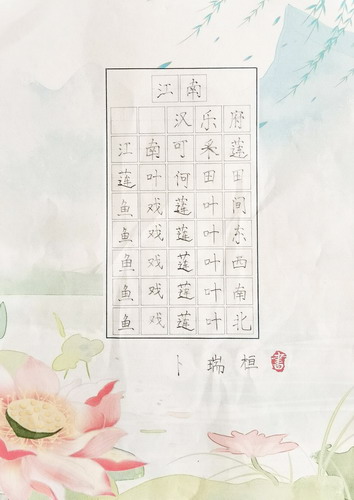 江南
汉乐府
江南可采莲
莲叶何田田
鱼戏莲叶间
鱼戏莲叶东
鱼戏莲叶西
鱼戏莲叶南
鱼戏莲叶北
卜瑞桓
書